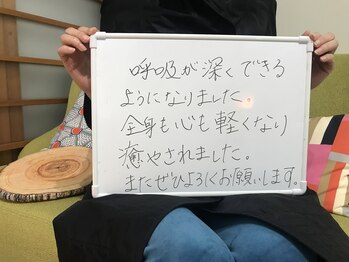 呼吸が深くできる
ようになりました。
全身も心も軽くなり
癒やされました。
またぜひよろしくお願いします。